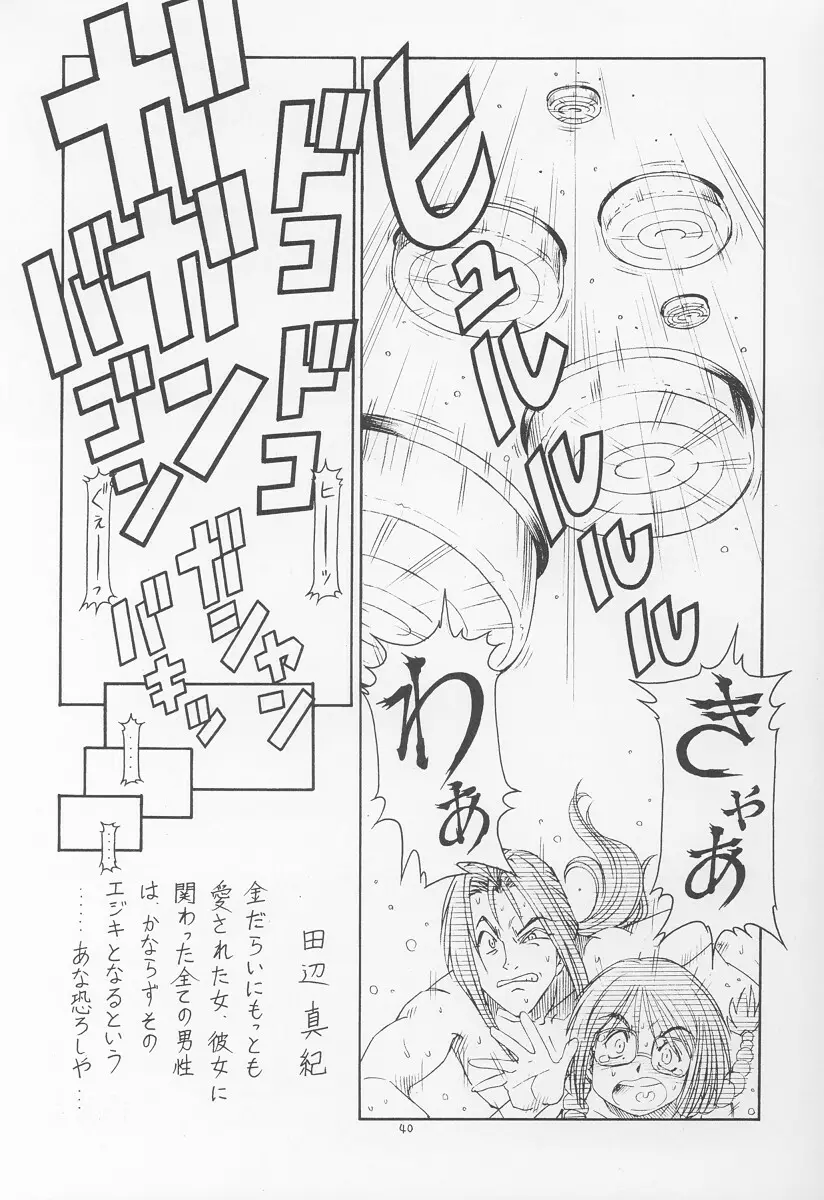 ヒュルルルルル
きゃあ
わぁ
ドコドコ
ガガガン
バゴン
ヒーーッ
ぐえーーっ
ガシャン
バキッ
……
……
田辺真紀
金だらいにもっとも
愛された女、彼女に
関わった全ての男性
は、かならずその
エジキとなるという
……あな恐ろしや…
40